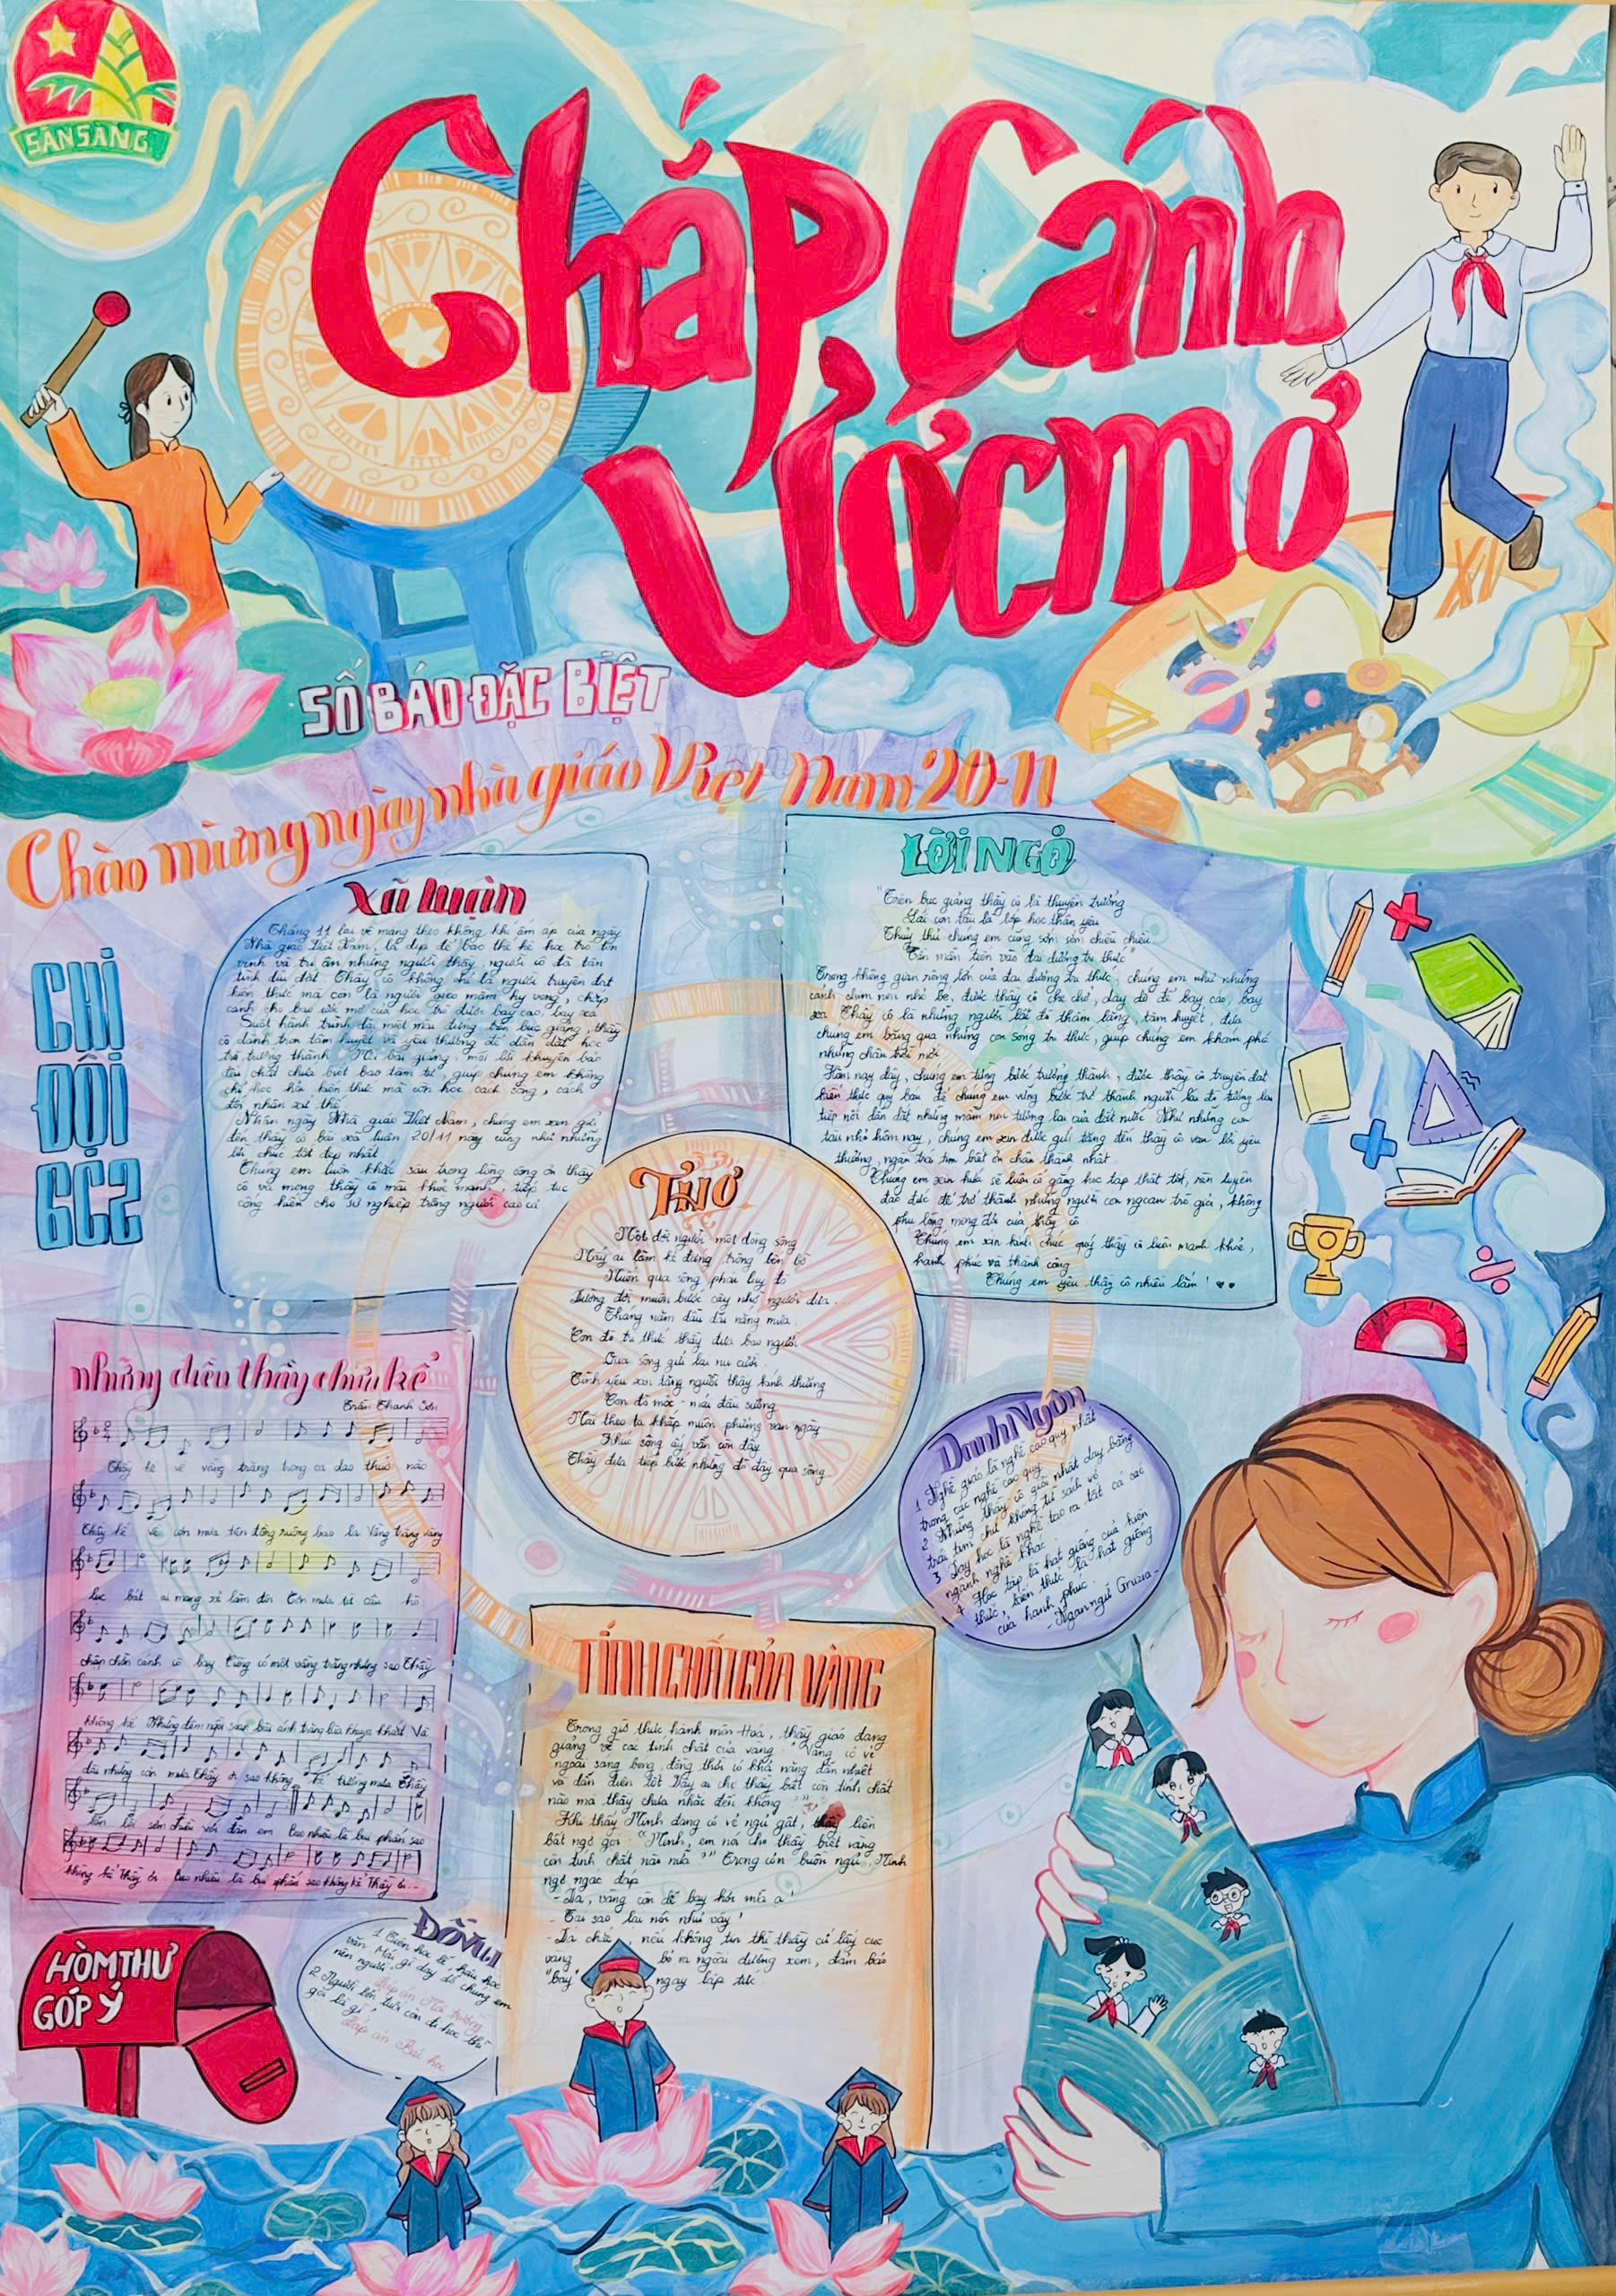 SẴN SÀNG
Chắp Cánh
Ước mơ
SỐ BÁO ĐẶC BIỆT
Chào mừng ngày nhà giáo Việt Nam 20-11
CHI
ĐỘI
6C2
Xã luận
Tháng 11 lại về mang theo không khí ấm áp của ngày
Nhà giáo Việt Nam, là dịp để bao thế hệ học trò tôn
vinh và tri ân những người thầy, người cô đã tận
tình dìu dắt. Thầy cô không chỉ là người truyền đạt
kiến thức mà còn là người gieo mầm hy vọng, chắp
cánh cho bao ước mơ của học trò được bay cao, bay xa
Suốt hành trình dài miệt mài đứng trên bục giảng, thầy
cô dành trọn tâm huyết và yêu thương để dẫn dắt học
trò trưởng thành. Mỗi bài giảng, mỗi lời khuyên bảo
đều chất chứa biết bao tâm tư, giúp chúng em không
chỉ học hỏi kiến thức mà còn học cách sống, cách
đối nhân xử thế
Nhân ngày Nhà giáo Việt Nam, chúng em xin gửi
đến thầy cô bài xã luận 20/11 này cùng như những
lời chúc tốt đẹp nhất
Chúng em luôn khắc sâu trong lòng công ơn thầy
cô và mong thầy cô mãi khoẻ mạnh, tiếp tục
cống hiến cho sự nghiệp trồng người cao cả
LỜI NGỎ
"Trên bục giảng thầy cô là thuyền trưởng
Lái con tàu là lớp học thân yêu
Thuỷ thủ chúng em cùng sớm sớm chiều chiều
Tiến mãi tiến vào đại dương tri thức"
Trong không gian rộng lớn của đại dương tri thức, chúng em như những
cánh chim non nhỏ bé, được thầy cô che chở, dạy dỗ để bay cao, bay
xa. Thầy cô là những người lái đò thầm lặng, tâm huyết, đưa
chúng em băng qua những con sóng tri thức, giúp chúng em khám phá
những chân trời mới
Hôm nay đây, chúng em từng bước trưởng thành, được thầy cô truyền đạt
kiến thức quý báu để chúng em vững bước trở thành người lái đò tương lai
tiếp nối dẫn dắt những mầm non tương lai của đất nước. Như những con
tàu nhỏ hôm nay, chúng em xin được gửi tặng đến thầy cô vạn lời yêu
thương, ngàn trái tim biết ơn chân thành nhất
Chúng em xin hứa sẽ luôn cố gắng học tập thật tốt, rèn luyện
đạo đức để trở thành những người con ngoan trò giỏi, không
phụ lòng mong đợi của thầy cô
Chúng em xin kính chúc quý thầy cô luôn mạnh khỏe,
hạnh phúc và thành công
Chúng em yêu thầy cô nhiều lắm !
THƠ
Một đời người một dòng sông
Mấy ai làm kẻ đứng trông bến bờ
Muốn qua sông phải lụy đò
Đường đời muôn bước cậy nhờ người đưa...
Tháng năm dầu dãi nắng mưa
Con đò tri thức thầy đưa bao người
Qua sông gửi lại nụ cười
Tình yêu xin tặng người thầy kính thương
Con đò mộc - mái đầu sương
Mãi theo ta khắp muôn phương vạn ngày
Khúc sông ấy vẫn còn đây
Thầy đưa tiếp bước những đò đầy qua sông
những điều thầy chưa kể
Trần Thanh Sơn
Thầy kể về vầng trăng trong ca dao thuở nào
Thầy kể về cơn mưa trên đồng ruộng bao la Vầng trăng vàng
lục bát ai mang xẻ làm đôi Cơn mưa từ câu hò
chấp chới cánh cò bay Cũng có một vầng trăng nhưng sao Thầy
không kể Những đêm ngồi soạn bài ánh trăng lùa khuya khoắt Và
dãi những cơn mưa Thầy ơi sao không kể trường mưa Thầy
lặn lội sớm chiều với đàn em Bao nhiêu là bụi phấn sao
không kể Thầy ơi Bao nhiêu là bụi phấn sao không kể Thầy ơi...
Danh Ngôn
1 Nghề giáo là nghề cao quý nhất
trong các nghề cao quý
2 Những thầy cô giỏi nhất dạy bằng
trái tim chứ không từ sách vở
3 Dạy học là nghề tạo ra tất cả các
ngành nghề khác
4 Học tập là hạt giống của kiến
thức, kiến thức là hạt giống
của hạnh phúc
-Ngạn ngữ Gruzia-
TÍNH CHẤT CỦA VÀNG
Trong giờ thực hành môn Hoá, thầy giáo đang
giảng về các tính chất của vàng: "Vàng có vẻ
ngoài sáng bóng, đồng thời có khả năng dẫn nhiệt
và dẫn điện tốt. Vậy ai cho thầy biết còn tính chất
nào mà thầy chưa nhắc đến không ?"
Khi thấy Minh đang có vẻ ngủ gật, thầy liền
bất ngờ gọi: "Minh, em nói cho thầy biết vàng
còn tính chất nào nữa ?" Trong cơn buồn ngủ, Minh
ngơ ngác đáp
- Dạ, vàng còn dễ bay hơi nữa ạ!
- Tại sao lại nói như vậy?
- Dạ chứ, nếu không tin thì thầy cứ lấy cục
vàng bỏ ra ngoài đường xem, đảm bảo
"bay" ngay lập tức
HÒM THƯ
GÓP Ý
ĐỐ VUI
1 Tiên học lễ, hậu học
văn Mái gì dạy dỗ chúng em
nên người
Đáp án Mái trường
2 Người lớn tuổi còn đi học thì
gọi là gì?
Đáp án Bác học